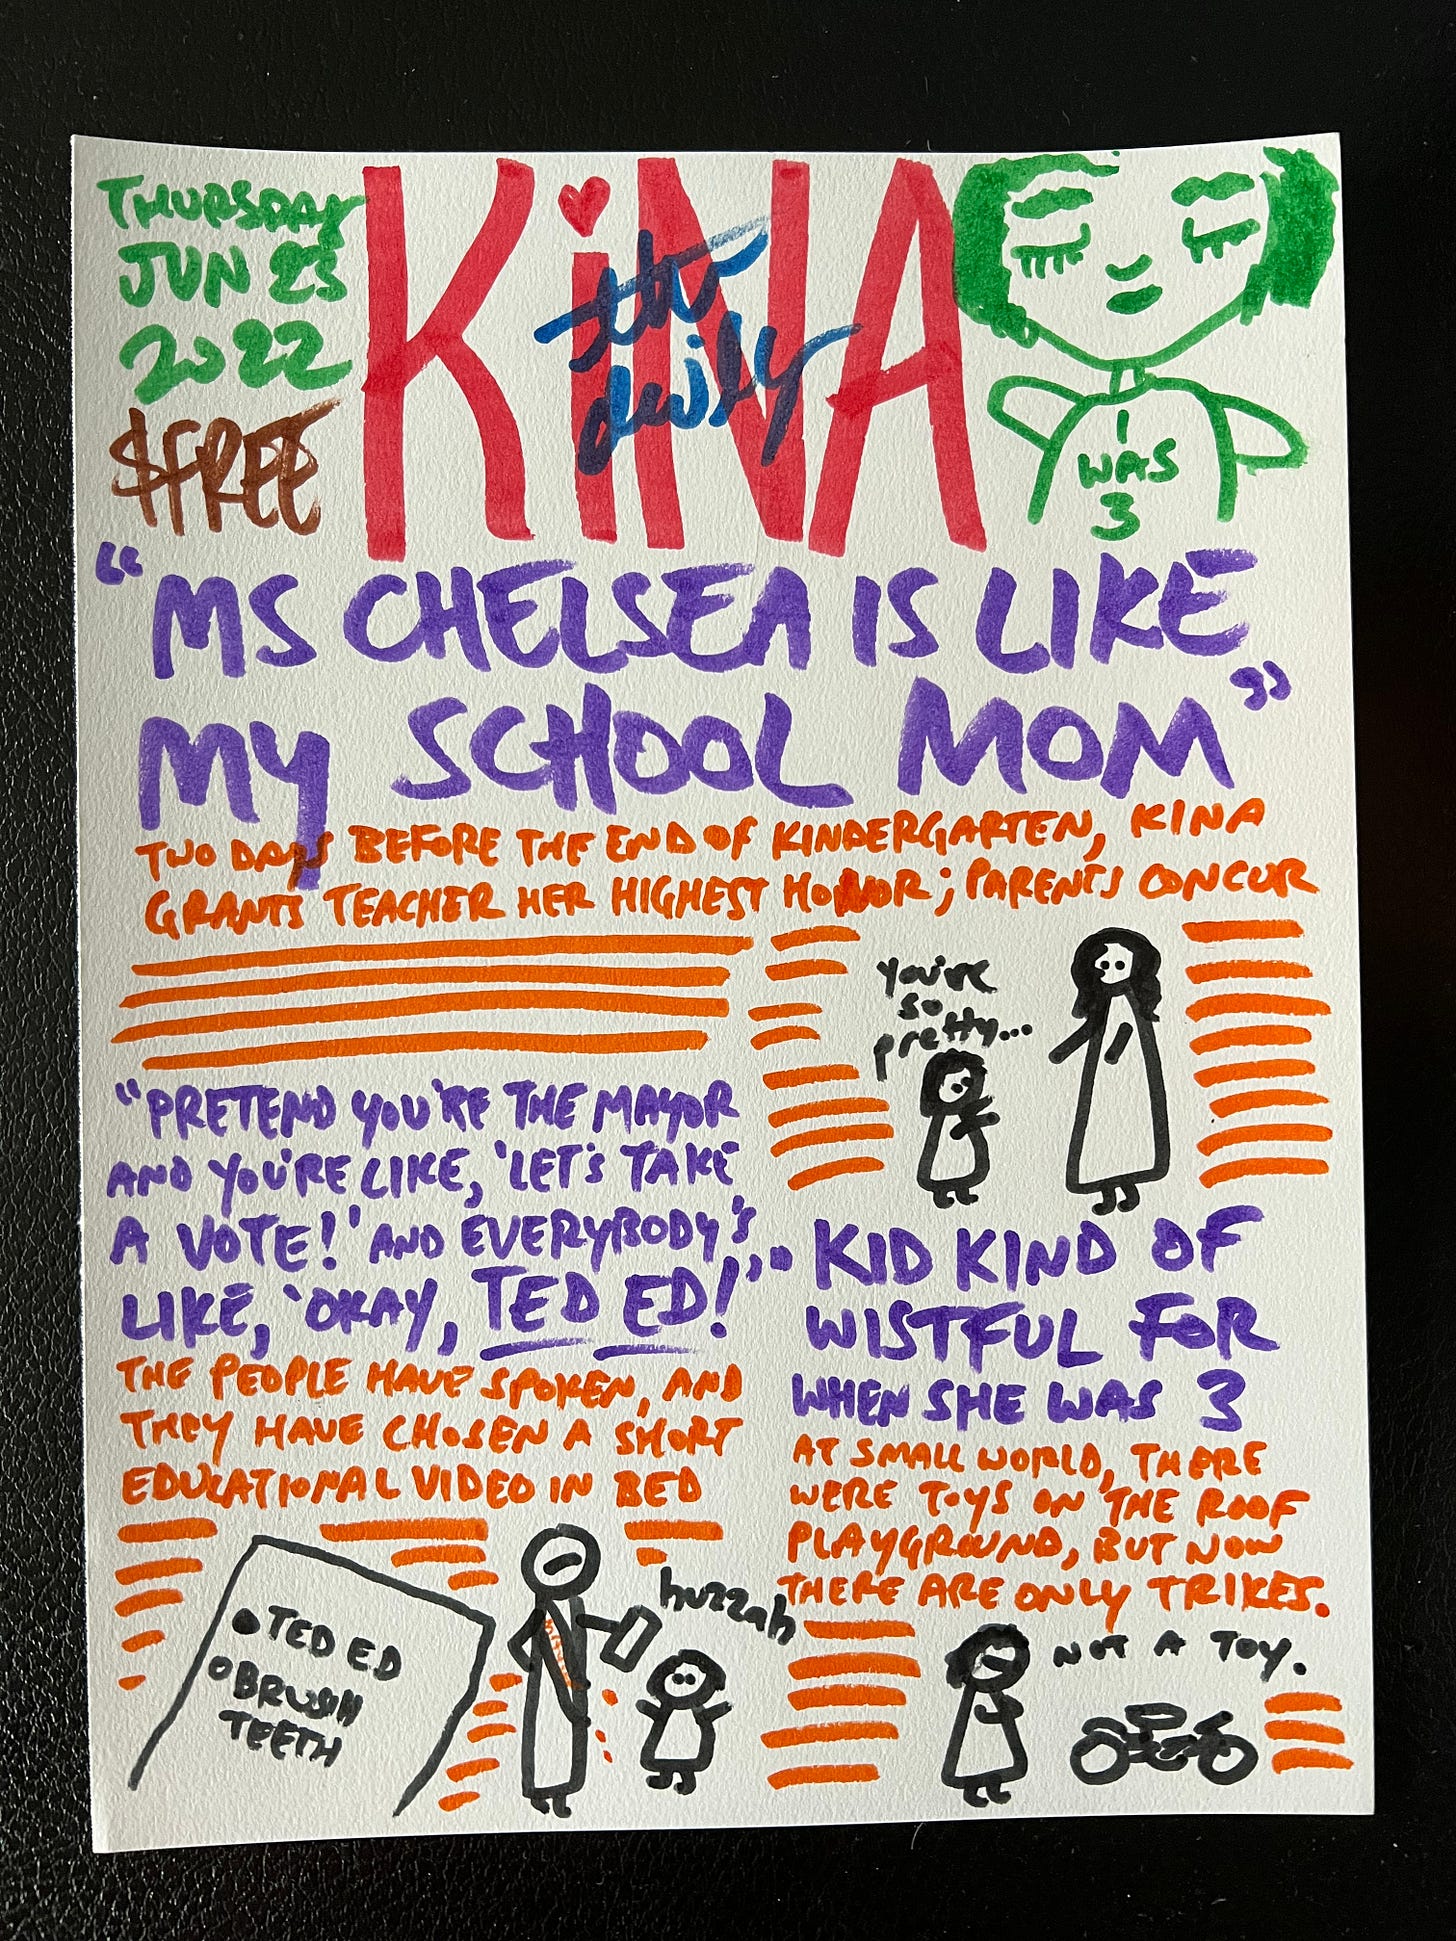 THURSDAY
JUN 23
2022
$FREE
KiNA
the
daily
I
WAS
3
"MS CHELSEA IS LIKE
MY SCHOOL MOM"
TWO DAYS BEFORE THE END OF KINDERGARTEN, KINA
GRANTS TEACHER HER HIGHEST HONOR; PARENTS CONCUR
you're
so
pretty...
"PRETEND YOU'RE THE MAYOR
AND YOU'RE LIKE, 'LET'S TAKE
A VOTE!' AND EVERYBODY'S
LIKE, 'OKAY, TED ED!'"
THE PEOPLE HAVE SPOKEN, AND
THEY HAVE CHOSEN A SHORT
EDUCATIONAL VIDEO IN BED
TED ED
BRUSH
TEETH
huzzah
KID KIND OF
WISTFUL FOR
WHEN SHE WAS 3
AT SMALL WORLD, THERE
WERE TOYS ON THE ROOF
PLAYGROUND, BUT NOW
THERE ARE ONLY TRIKES.
NOT A TOY.